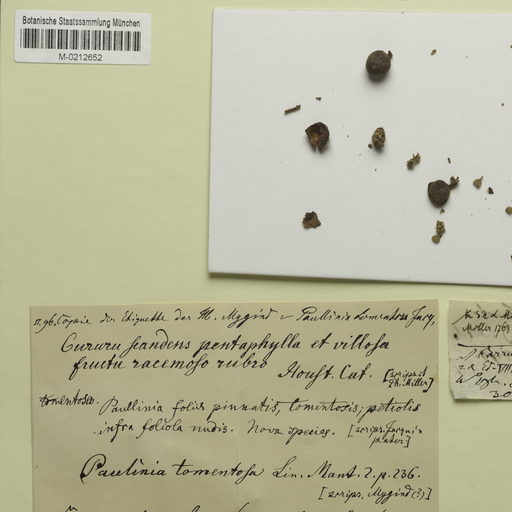 Botanische Staatssammlung München
M-0212652
Copie der Etiquette des M. Mygind v Paullinia tomentosa Jacq,
Cururu scandens pentaphylla et villosa
fructu racemoso rubro
Houst. Cat. [scripsit
Ph. Miller]
tomentosa. Paullinia foliis pinnatis, tomentosis; petiolis
infra foliola nudis. Nova species. [scrips. Jacquin
pater]
Paulinia tomentosa Lin. Mant. 2. p. 236.
[scrips. Mygind (?)]
Miller 1763